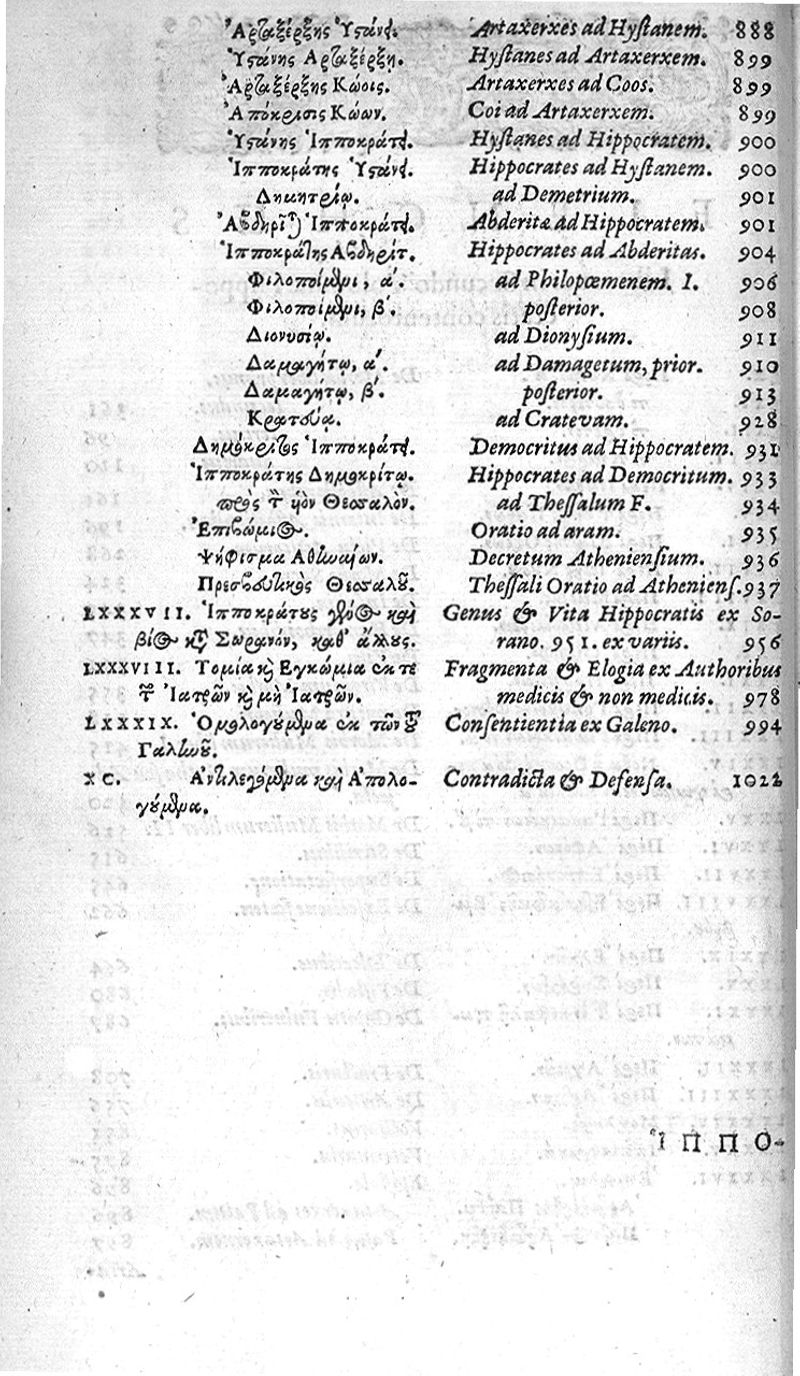 Ἀρταξέρξης Ὑστάνει. Artaxerxes ad Hyſtanem. 888
Ὑστάνης Ἀρταξέρξῃ. Hyſtanes ad Artaxerxem. 899
Ἀρταξέρξης Κώοις. Artaxerxes ad Coos. 899
Ἀπόκρισις Κώων. Coi ad Artaxerxem. 899
Ὑστάνης Ἱπποκράτει. Hyſtanes ad Hippocratem. 900
Ἱπποκράτης Ὑστάνει. Hippocrates ad Hyſtanem. 900
Δημητρίῳ. ad Demetrium. 901
Ἀβδηρῖται Ἱπποκράτει. Abderitæ ad Hippocratem. 901
Ἱπποκράτης Ἀβδηρίτ. Hippocrates ad Abderitas. 904
Φιλοποίμενι, α΄. ad Philopœmenem. I. 906
Φιλοποίμενι, β΄. poſterior. 908
Διονυσίῳ. ad Dionyſium. 911
Δαμαγήτῳ, α΄. ad Damagetum, prior. 910
Δαμαγήτῳ, β΄. poſterior. 913
Κρατεύα. ad Cratevam. 928
Δημόκριτος Ἱπποκράτει. Democritus ad Hippocratem. 931
Ἱπποκράτης Δημοκρίτῳ. Hippocrates ad Democritum. 933
πρὸς τὸν ὑὸν Θεσσαλὸν. ad Theſſalum F. 934
Ἐπιβώμιος. Oratio ad aram. 935
Ψήφισμα Ἀθηναίων. Decretum Athenienſium. 936
Πρεσβευτικὸς Θεσσαλοῦ. Theſſali Oratio ad Athenienſ. 937
LXXXVII. Ἱπποκράτους γένος καὶ Genus & Vita Hippocratis ex So-
βίος κατὰ Σωρανόν, καθ' ἄλλους. rano. 951. ex variis. 956
LXXXVIII. Τομία καὶ Ἐγκώμια ἐκ τε Fragmenta & Elogia ex Authoribus
τῶν Ἰατρῶν καὶ μὴ Ἰατρῶν. medicis & non medicis. 978
LXXXIX. Ὁμολογούμενα ἐκ τῶν τοῦ Conſentientia ex Galeno. 994
Γαληνοῦ.
XC. Ἀντιλεγόμενα καὶ Ἀπολο- Contradicta & Defenſa. 1022
γούμενα.
ἹΠΠΟ-